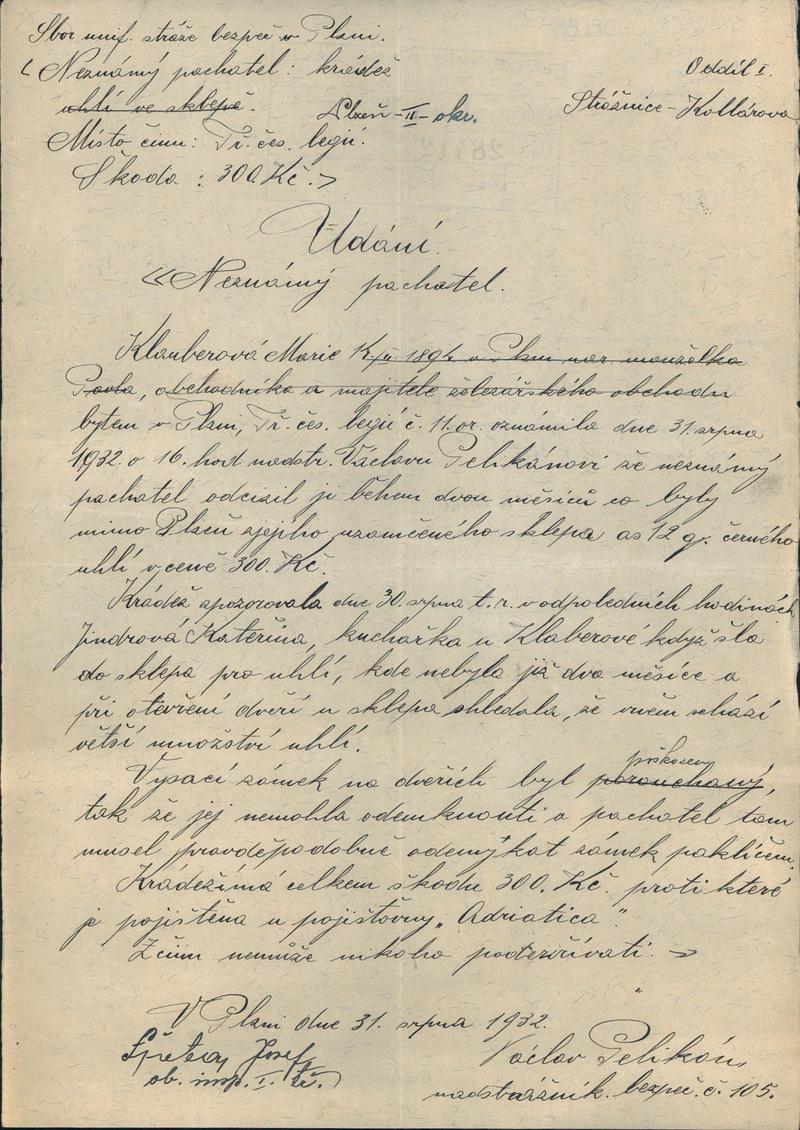 Sbor unif. stráže bezpeč v Plzni.
Neznámý pachatel: krádež
Oddíl I.
uhlí ve sklepě.
Plzeň-II-okr.
Strážnice-Kollárova
Místo činu: Tř. čes. legií.
Škoda: 300. Kč.
Udání.
Neznámý pachatel.
Klauberová Marie 1894 v Plzni nar. manželka
Pavla, obchodníka a majitele železářského obchodu
bytem v Plzni, Tř. čes. legií č. 11. or. oznámila dne 31. srpna
1932. o 16. hod nadstr. Václavu Pelikánovi že neznámý
pachatel odcizil ji během dvou měsíců co byly
mimo Plzeň zjejího uzamčeného sklepa as 12 q. černého
uhlí v ceně 300. Kč.
Krádež zpozorovala dne 30. srpna t. r. v odpoledních hodinách
Jindrová Kateřina, kuchařka u Klaberové když šla
do sklepa pro uhlí, kde nebyla již dva měsíce a
při otevření dveří u sklepa shledala, že vněm schází
větší množství uhlí.
poškozený
Vysací zámek na dveřích byl porouchaný,
tak že jej nemohla odemknouti a pachatel tam
musel pravděpodobně odemýkat zámek paklíčem.
Krádežímá celkem škodu 300. Kč. proti které
je pojištěna u pojišťovny „Adriatica".
Zčinu nemůže nikoho podezřívati.
V Plzni dne 31. srpna 1932.
Josef
Václav Pelikán,
ob. insp. I. tř.
nadstrážník. bezpeč. č. 105.